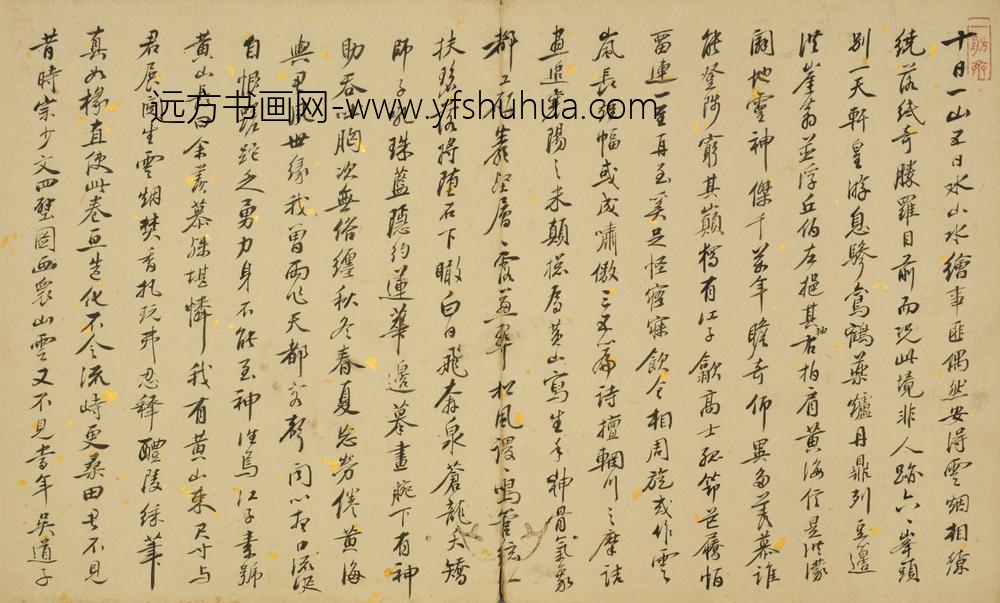 十日一山五日水山水繪事匪偶然安得雲烟相繚
繞落紙奇勝羅目前而況此境非人跡六六峯頭
別一天軒皇游息驂鸞鶴藥爐丹鼎列臺邊
洪崖翁並浮丘伯左挹其袖右拍肩黃海信是洪濛
闢地靈神傑千萬年瞻奇仰異多羨慕誰
能登陟窮其巔獨有江子歙高士孤筇芒屩恒
留連一至再至奚足怪寤寐飲食相周旋或作雲
嵐長幅或成嘯傲三五篇詩擅輞川之摩詰
畫追襄陽之米顛攜為黃山寫生手神骨氣象
都工顛崖層層露蒼翠松風謖謖鳴管絃
扶殘將墮石下瞰白日飛奔泉蒼龍夭矯
師子乳珠藍隱約蓮華邊摹畫腕下有神
助吞胸次無俗纏秋冬春夏忘勞倦黃海
與君世緣我曾兩作天都客聲聞心想口流涎
自恨距乏勇力身不能至神往焉江子素號
黃山余羨慕殊堪憐我有黃山來尺寸與
君展閱生雲烟焚香執玩弗忍釋醴陵綵筆
真如椽直使此卷亙造化不令流峙更桑田君不見
昔時宗少文四壁圖畫眾山雲又不見當年吳道子
远方书画网-www.yfshuhua.com